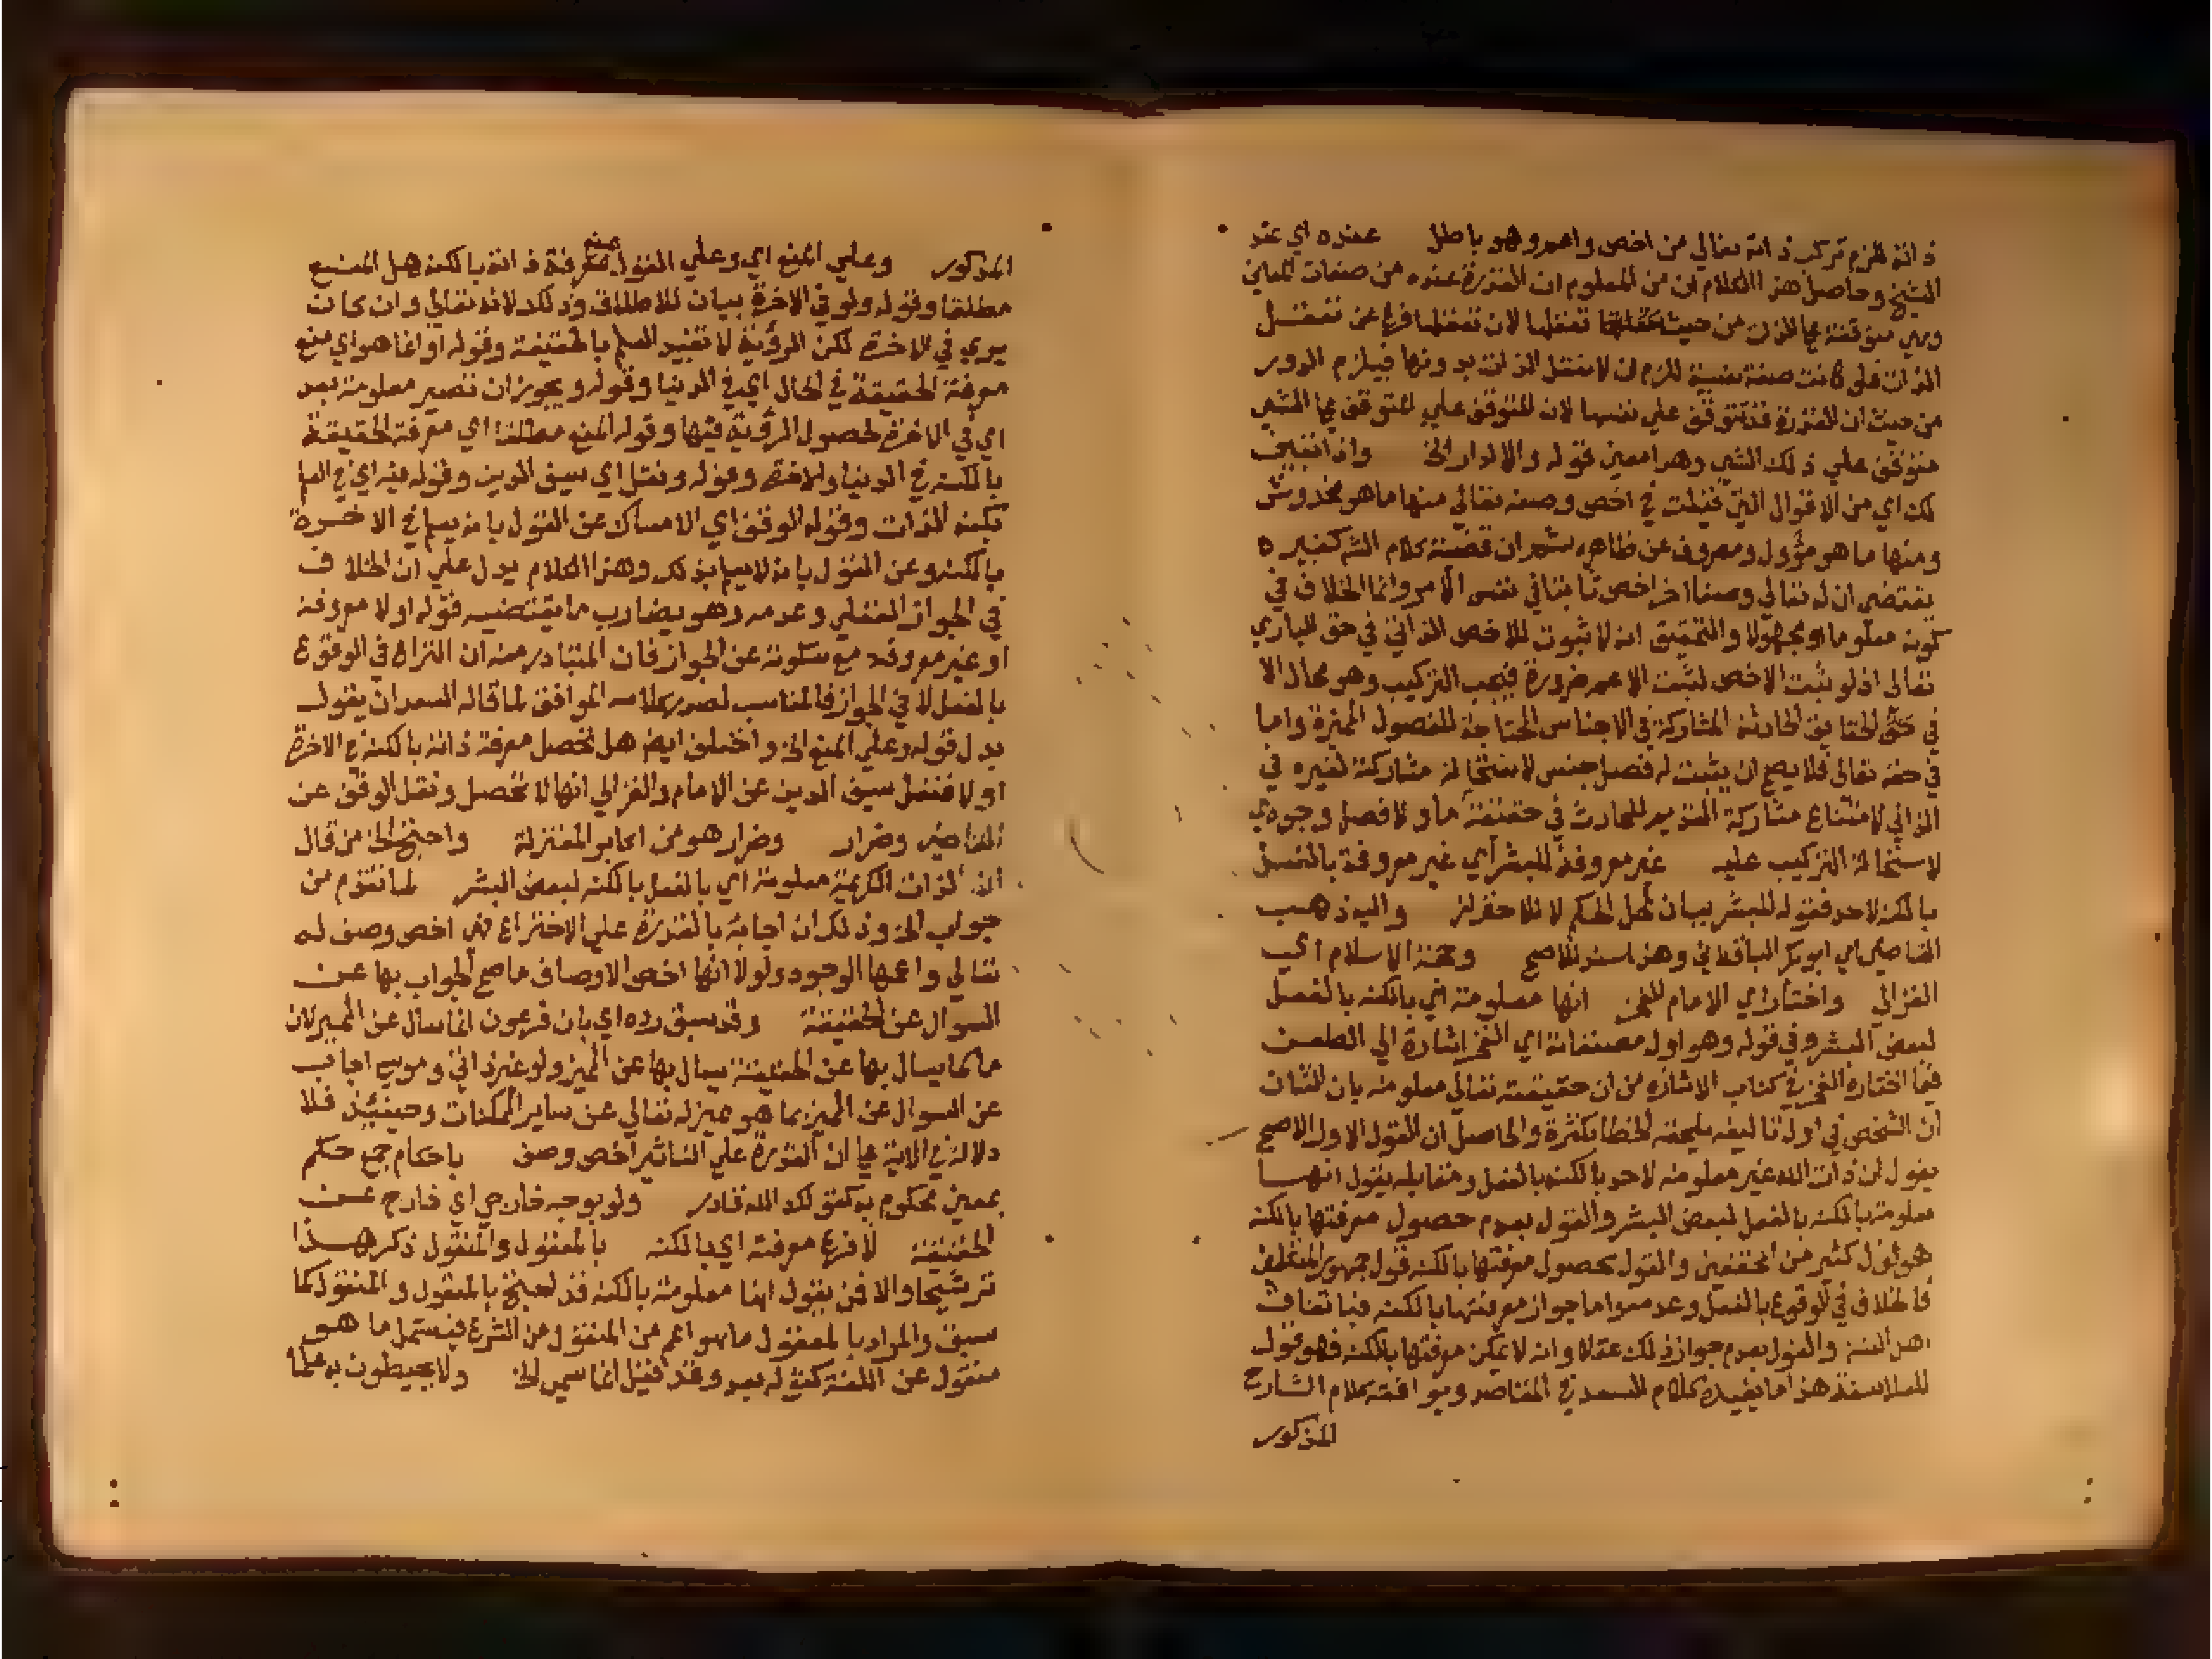 ذاته للزم تركب ذاته تعالي من اخص واعم وهو باطل عنده اي عند
الشيخ وحاصل هذا الكلام ان من المعلوم ان القدرة عنده من صفات المعاني
وهي متوقفة علي الذات من حيث تعقلها لان تعقلها فرع عن تعقل
الذات فلو كانت صفة نفسية للزم ان لا تعقل الذات بدونها فيلزم الدور
من حيث ان القدرة قد تتوقف علي نفسها لان المتوقف علي المتوقف علي الشي
متوقف علي ذلك الشي وهذا معني قوله والا لدار الخ واذا تبين
لك اي من الاقوال التي قيلت في اخص وصفه تعالي منها ما هو مخدوش
ومنها ما هو مؤول ومصروف عن ظاهره ثم ان قضية كلام الش كغيره
يقتضي ان له تعالي وصفا اخر اخص ثابتا في نفس الامر وانما الخلاف في
كونه معلوما او مجهولا والتحقيق انه لا ثبوت للاخص الذاتي في حق الباري
تعالي اذ لو ثبت الاخص لثبت الاعم ضرورة فيجب التركيب وهو محال الا
في حق الحقايق الحادثة المشاركة في الاجناس المحتاجة للفصول المميزة واما
في حقه تعالي فلا يصح ان يثبت له فصل جنس لاستحالة مشاركة لغيره في
الذاتي لامتناع مشاركة القديم للحادث في حقيقة ما ولا فصل وجودي
لاستحالة التركيب عليه غير معروفة للبشر اي غير معروفة بالفعل
بالكنه لاحد فقوله للبشر بيان لمحل الحكم لا للاحتراز واليه ذهب
القاضي اي ابو بكر الباقلاني وهذا سند للاصح وحجة الاسلام اي
الغزالي واختار اي الامام الفخر انها معلومة اي بالكنه بالفعل
لبعض البشر وفي قوله وهو اول مصنفاته اي الفخر اشارة الي الطعن
فيما اختاره الفخر في كتاب الاشارة من ان حقيقته تعالي معلومة بان الشان
ان الشخص في اول تاليفه يلحقه الخطا بكثرة والحاصل ان القول الاول الاصح
يقول ان ذات الله غير معلومة لاحد بالكنه بالفعل ومقابله يقول انها
معلومة بالكنه بالفعل لبعض البشر والقول بعدم حصول معرفتها بالكنه
هو قول كثير من المحققين والقول بحصول معرفتها بالكنه قول جمهور المتكلمين
فالخلاف في الوقوع بالفعل وعدمه واما جواز معرفتها بالكنه فباتفاق
اهل السنة والقول بعدم جواز ذلك عقلا وانه لا يمكن معرفتها بالكنه فهو قول
الفلاسفة هذا ما يفيده كلام السعد في المقاصد ويوافقه كلام الشارح
المذكور
المذكور وعلي المنع اي وعلي القول بمنع معرفة ذاته بالكنه هل المنع
مطلقا وقوله ولو في الاخرة بيان للاطلاق وذلك لانه تعالي وان كان
يري في الاخرة لكن الرؤية لا تفيد العلم بالحقيقة وقوله او انما هو اي منع
معرفة الحقيقة في الحال اي في الدنيا وقوله ويجوز ان تصير معلومة بعد
اي في الاخرة لحصول الرؤية فيها وقوله المنع مطلقا اي معرفة الحقيقة
بالكنه في الدنيا والاخرة وقوله ونقل اي سيف الدين وقوله فيه اي في العلم
بكنه الذات وقوله الوقف اي الامساك عن القول بانه يعلم في الاخرة
بالكنه وعن القول بانه لا يعلم بذلك وهذا الكلام يدل علي ان الخلاف
في الجواز العقلي وعدمه وهو يضارب ما يقتضيه قوله اولا معروفة
او غير معروفة مع سكوته عن الجواز فان المتبادر منه ان النزاع في الوقوع
بالفعل لا في الجواز فالمناسب لصدر كلامه الموافق لما قاله السعد ان يقول
بدل قوله وعلي المنع الخ واختلف ايضا هل تحصل معرفة ذاته بالكنه في الاخرة
او لا فنقل سيف الدين عن الامام والغزالي انها لا تحصل ونقل الوقف عن
القاضي وضرار وضرار هو من اكابر المعتزلة واحتج الخ من قال
الذات الكريمة معلومة اي بالفعل بالكنه لبعض البشر لما تقدم من
جواب الخ وذلك ان اجابة بالقدرة علي الاختراع هي اخص وصف له
تعالي واعمها الوجود ولولا انها اخص الاوصاف ما صح الجواب بها عن
السوال عن الحقيقة وقد سبق رده اي بان فرعون انما سال عن المميز لان
ما كما يسال بها عن الحقيقة يسال بها عن المميز ولو غير ذاتي وموسي اجاب
عن السوال عن المميز بما هو مميز له تعالي عن ساير الممكنات وحينئذ فلا
دلالة في الاية علي ان القدرة علي التاثير اخص وصف باحكام جمع حكم
بمعني محكوم به كقولك الله قادر ولو بوجه خارجي اي خارج عن
الحقيقة لا فرع معرفته اي بالكنه بالمعقول والمنقول ذكر هذا
ترشيحا والا فمن يقول انها معلومة بالكنه قد احتج بالمعقول والمنقول كما
سبق والمراد بالمعقول ما هو اعم من المنقول من الشرع فيشمل ما هو
منقول عن اللغة كقوله بعد وقد قيل انما سمي الخ ولا يحيطون به علما